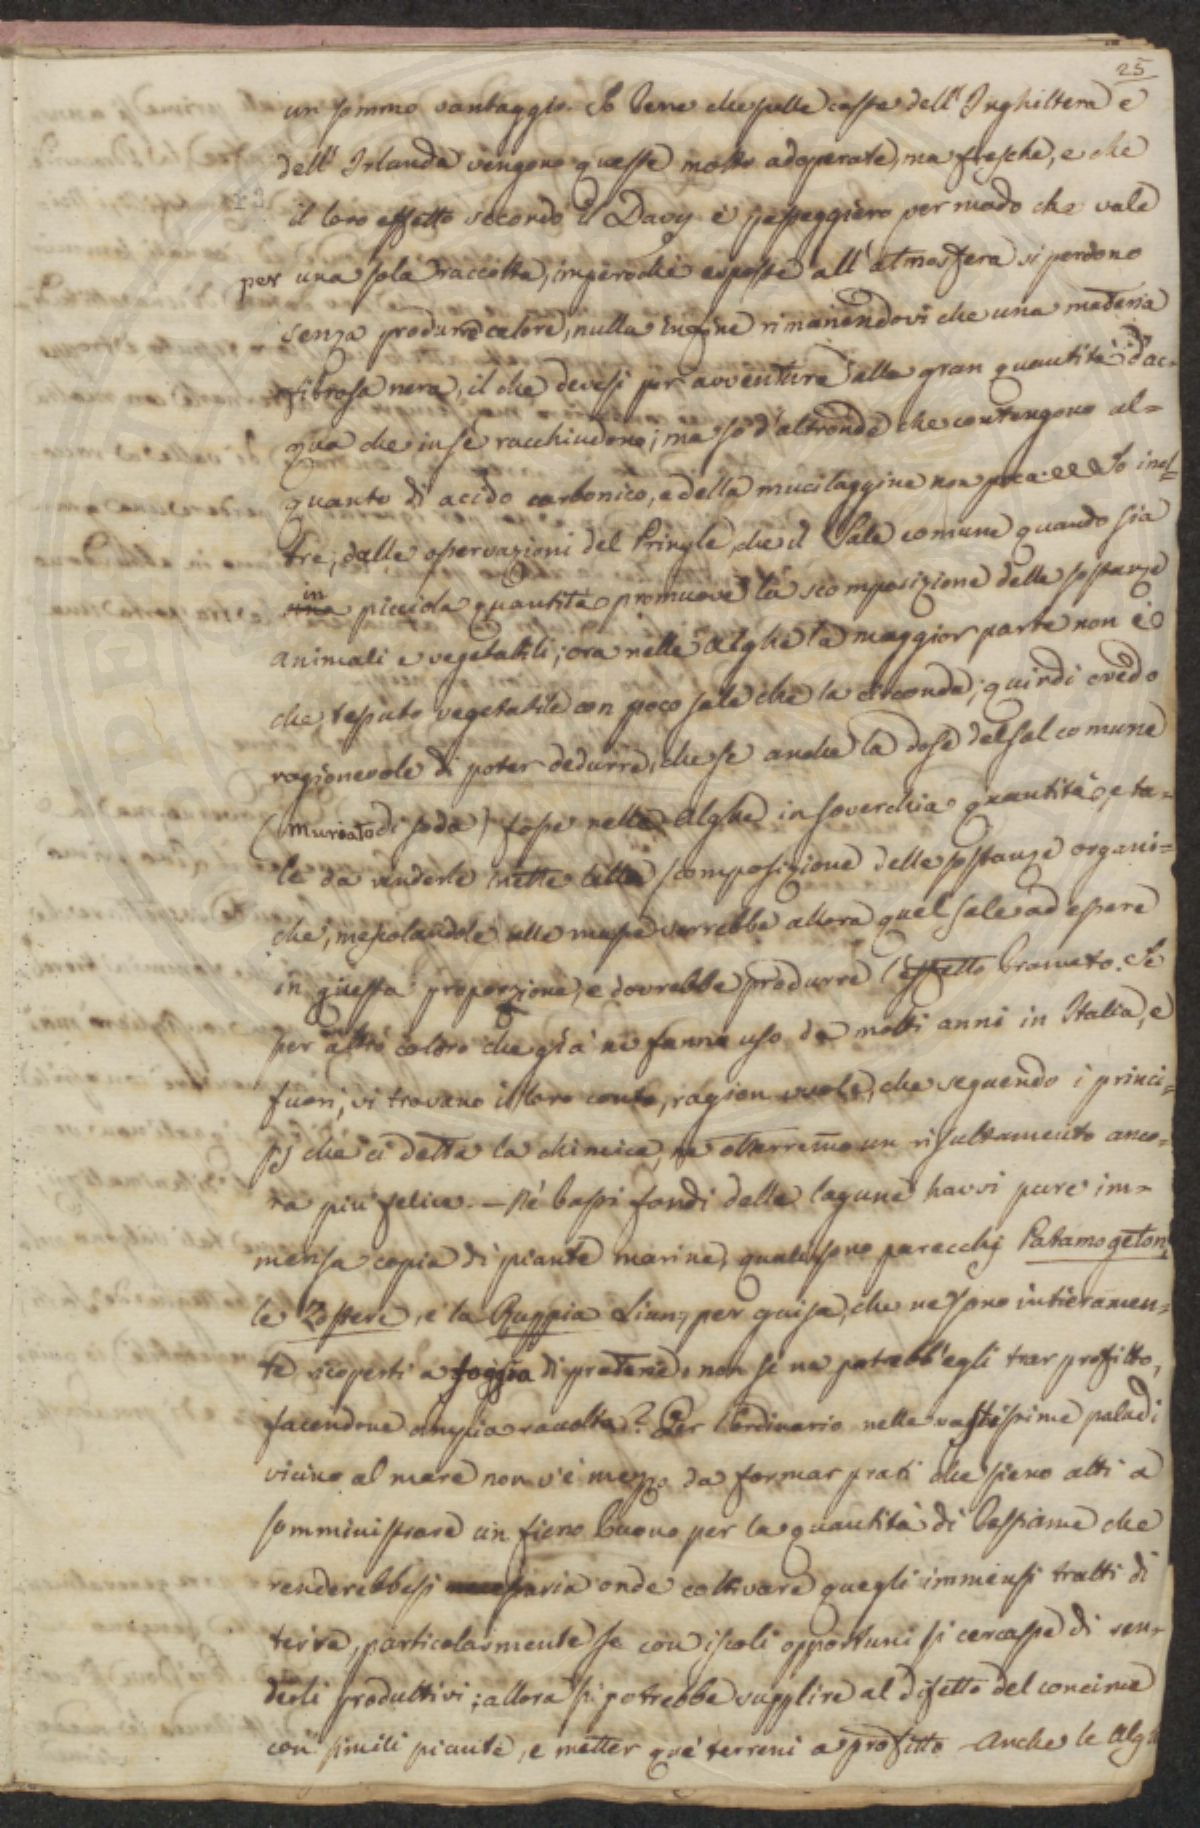 25
un sommo vantaggio. So bene che sulle coste dell'Inghilterra e
dell'Irlanda vengono queste molto adoperate, ma fresche, e che
il loro effetto secondo il Davy è passeggiero per modo che vale
per una sola raccolta, imperochè esposte all'atmosfera si perdono
senza produrre calore, nulla infine rimanendovi che una materia
fibrosa nera, il che devesi per avventura alla gran quantità d'ac-
qua che in se racchiudono; ma so d'altronde che contengono al=
quanto di acido carbonico, e della mucilaggine non poca. So inol=
tre, dalle osservazioni del Pringle, che il Sale comune quando sia
in piccida quantità promuove la scomposizione delle sostanze
animali e vegetabili; ora nelle Alghe la maggior parte non è
che tessuto vegetabile con poco sale che la circonda; quindi credo
ragionevole di poter dedurre, che se anche la dose del sal comune
(muriato di soda) fosse nelle Alghe in soverchia quantità, e ta=
le da renderle inette alla scomposizione delle sostanze organi=
che, mescolandole alle masse verrebbe allora quel sale ad essere
in questa proporzione, e dovrebbe produrre l'effetto bramato. Se
per altro coloro che già ne fanno uso da molti anni in Italia, e
fuori, vi trovano il loro conto, ragion vuole, che seguendo i princi=
pj che ci detta la chimica, ne otterremo un risultamento anco=
ra più felice. — Ne' bassi fondi delle lagune havvi pure im=
mensa copia di piante marine, quali sono parecchj Patamogeton,
le Zostere, e la Ruppia Linn, per guisa, che ne sono intieramen=
te scoperti a foggia di praterie, non se ne potrebb'egli trar profitto,
facendone ampia raccolta? Per l'ordinario nelle vastissime paludi
vicino al mare non v'è mezzo da formar prati che sieno atti a
somministrare un fieno buono per la quantità di bestiame che
renderebbesi necessaria onde coltivare quegli immensi tratti di
terre, particolarmente se con iscoli opportuni si cercasse di ren=
derli produttivi; allora si potrebbe supplire al difetto del concime
con simili piante, e metter que' terreni a profitto. Anche le Alg